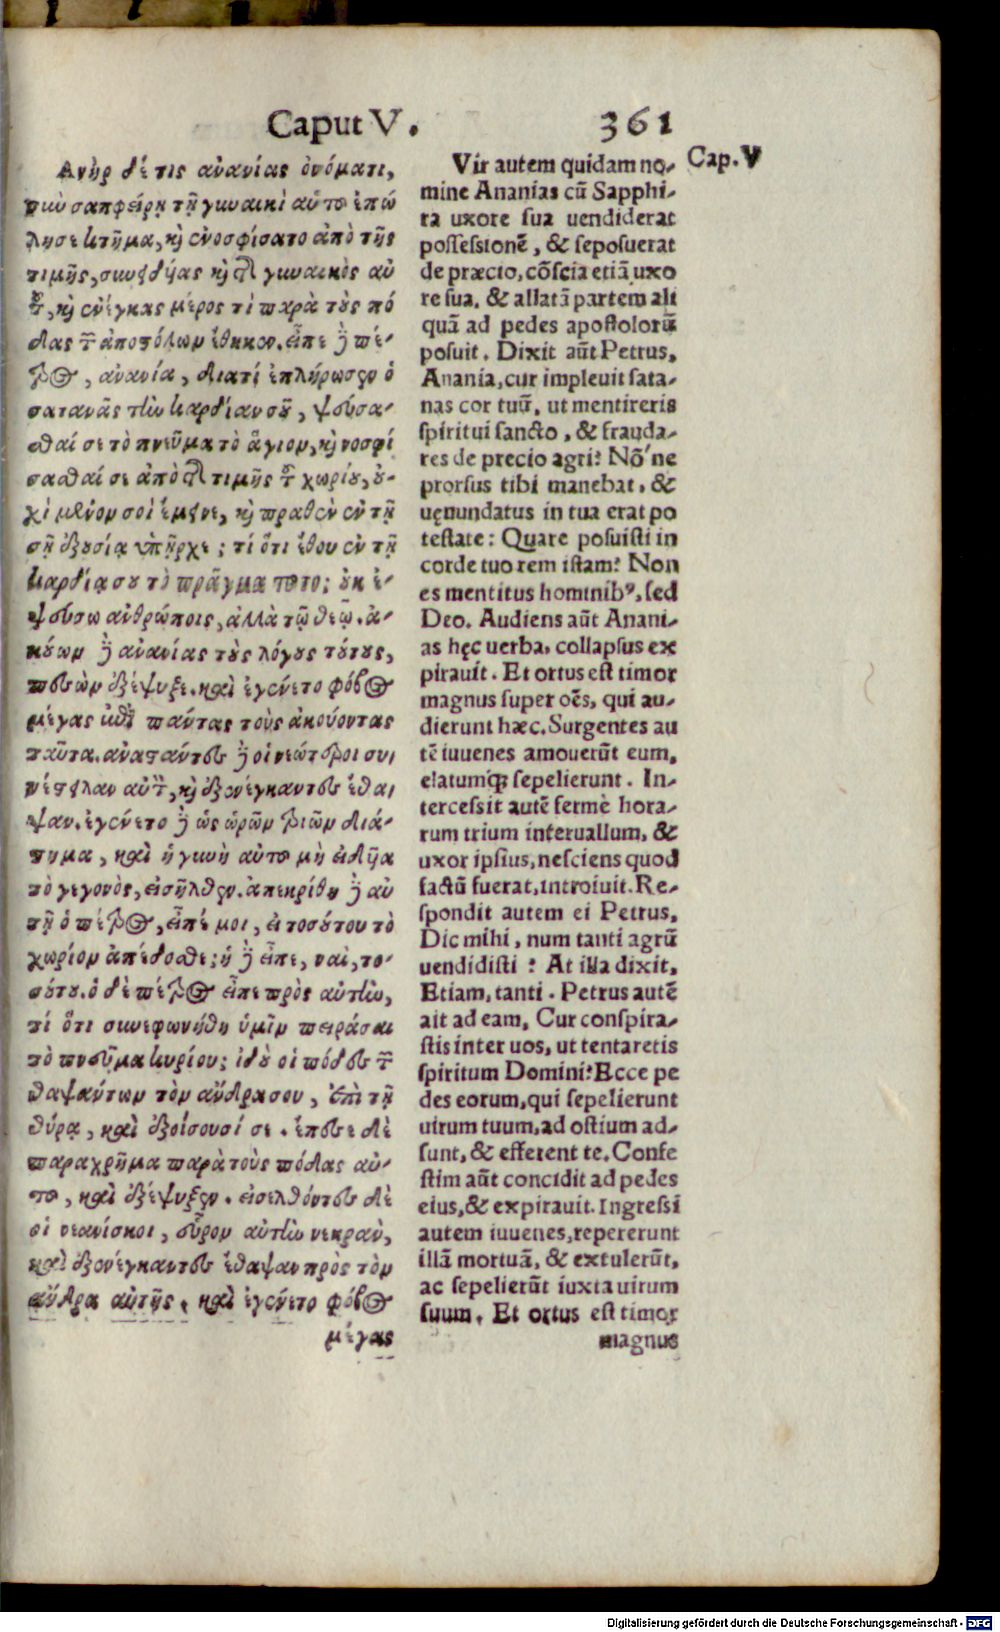 Caput V. 361
Ανὴρ δέ τις ἀνανίας ὀνόματι,
σὺν σαπφείρῃ τῇ γυναικὶ αὑτοῦ ἐπώ
λησε κτῆμα, καὶ ἐνοσφίσατο ἀπὸ τῆς
τιμῆς, συνειδυίας καὶ τῆς γυναικὸς αὑ
τοῦ, καὶ ἐνέγκας μέρος τὶ παρὰ τοὺς πό
δας τῶν ἀποστόλων ἔθηκεν. εἶπε δὲ πέ-
τρος, ἀνανία, διατί ἐπλήρωσεν ὁ
σατανᾶς τὴν καρδίαν σοῦ, ψεύσα-
σθαί σε τὸ πνεῦμα τὸ ἅγιον, καὶ νοσφί
σασθαί σε ἀπὸ τῆς τιμῆς τοῦ χωρίου, ὀυ-
χὶ μένον σοὶ ἔμενε, καὶ πραθὲν ἐν τῇ
σῇ ἐξουσίᾳ ὑπῆρχε; τί ὅτι ἔθου ἐν τῇ
καρδίᾳ σου τὸ πρᾶγμα τοῦτο; ὀυκ ἐ-
ψεύσω ἀνθρώποις, ἀλλὰ τῷ θεῷ. ἀ-
κούων δὲ ἀνανίας τοὺς λόγους τούτους,
πεσὼν ἐξέψυξε. καὶ ἐγένετο φόβος
μέγας ἐπὶ πάντας τοὺς ἀκούοντας
ταῦτα. ἀναστάντες δὲ οἱ νεώτεροι συ
νέστειλαν αὐτὸν, καὶ ἐξενέγκαντες ἔθα
ψαν. ἐγένετο δὲ ὡς ὡρῶν τριῶν διά-
στημα, καὶ ἡ γυνὴ αὐτοῦ μὴ εἰδυῖα
τὸ γεγονὸς, εἰσῆλθεν. ἀπεκρίθη δὲ αὐ
τῇ ὁ πέτρος, εἶπέ μοι, εἰ τοσούτου τὸ
χωρίον ἀπέδοσθε; ἡ δὲ εἶπε, ναὶ, το-
σούτου. ὁ δὲ πέτρος εἶπε πρὸς αὐτὴν,
τί ὅτι συνεφωνήθη ὑμῖν πειράσαι
τὸ πνεῦμα κυρίου; ἰδοὺ οἱ πόδες τῶν
θαψάντων τὸν ἄνδρα σου, ἐπὶ τῇ
θύρᾳ, καὶ ἐξοίσουσί σε. ἔπεσε δὲ
παραχρῆμα παρὰ τοὺς πόδας αὐ-
τοῦ, καὶ ἐξέψυξεν. εἰσελθόντες δὲ
οἱ νεανίσκοι, εὗρον αὐτὴν νεκρὰν,
καὶ ἐξενέγκαντες ἔθαψαν πρὸς τὸν
ἄνδρα αὐτῆς. καὶ ἐγένετο φόβος
μέγας
Vir autem quidam no-
mine Ananias cũ Sapphi-
ra uxore sua uendiderat
possessionẽ, & seposuerat
de præcio, cõscia etiã uxo
re sua, & allatã partem ali
quã ad pedes apostolorũ
posuit. Dixit aũt Petrus,
Anania, cur impleuit sata-
nas cor tuũ, ut mentireris
spiritui sancto, & frauda-
res de precio agri? Nõ'ne
prorsus tibi manebat, &
uęnundatus in tua erat po
testate: Quare posuisti in
corde tuo rem istam? Non
es mentitus hominibꝰ, sed
Deo. Audiens aũt Anani-
as hęc uerba, collapsus ex
pirauit. Et ortus est timor
magnus super oẽs, qui au-
dierunt hæc. Surgentes au
tẽ iuuenes amouerũt eum,
elatumq; sepelierunt. In-
tercessit autẽ fermè hora-
rum trium interuallum, &
uxor ipsius, nesciens quod
factũ fuerat, introiuit. Re-
spondit autem ei Petrus,
Dic mihi, num tanti agrũ
uendidisti? At illa dixit,
Etiam, tanti. Petrus autẽ
ait ad eam, Cur conspira-
stis inter uos, ut tentaretis
spiritum Domini? Ecce pe
des eorum, qui sepelierunt
uirum tuum, ad ostium ad-
sunt, & efferent te. Confe
stim aũt concidit ad pedes
eius, & expirauit. Ingressi
autem iuuenes, repererunt
illã mortuã, & extulerũt,
ac sepelierũt iuxta uirum
suum. Et ortus est timor
magnus
Cap. V
Digitalisierung gefördert durch die Deutsche Forschungsgemeinschaft - DFG